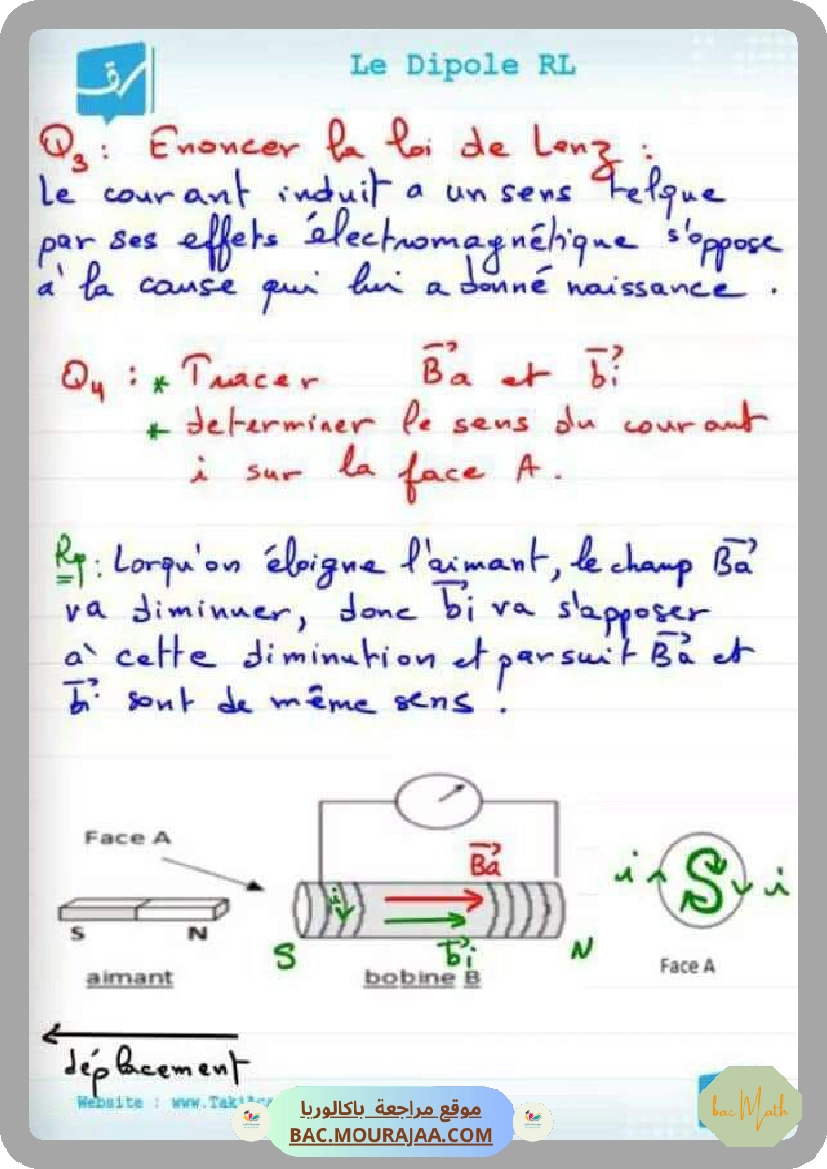 Le Dipole RL
Q3 : Enoncer la loi de Lenz :
Le courant induit a un sens telque
par ses effets électromagnétique s'oppose
à la cause qui lui a donné naissance .
Q4 : * Tracer Ba et bi
* determiner le sens du courant
i sur la face A .
Rp : Lorqu'on éloigne l'aimant, le champ Ba
va diminuer, donc bi va s'apposer
à cette diminution et par suit Ba et
bi sont de même sens !
Face A
Ba
i
i
i
S
N
S
bi
N
aimant
bobine B
Face A
déplacement
Website : www.Taki
موقع مراجعة باكالوريا
BAC.MOURAJAA.COM
bac Math